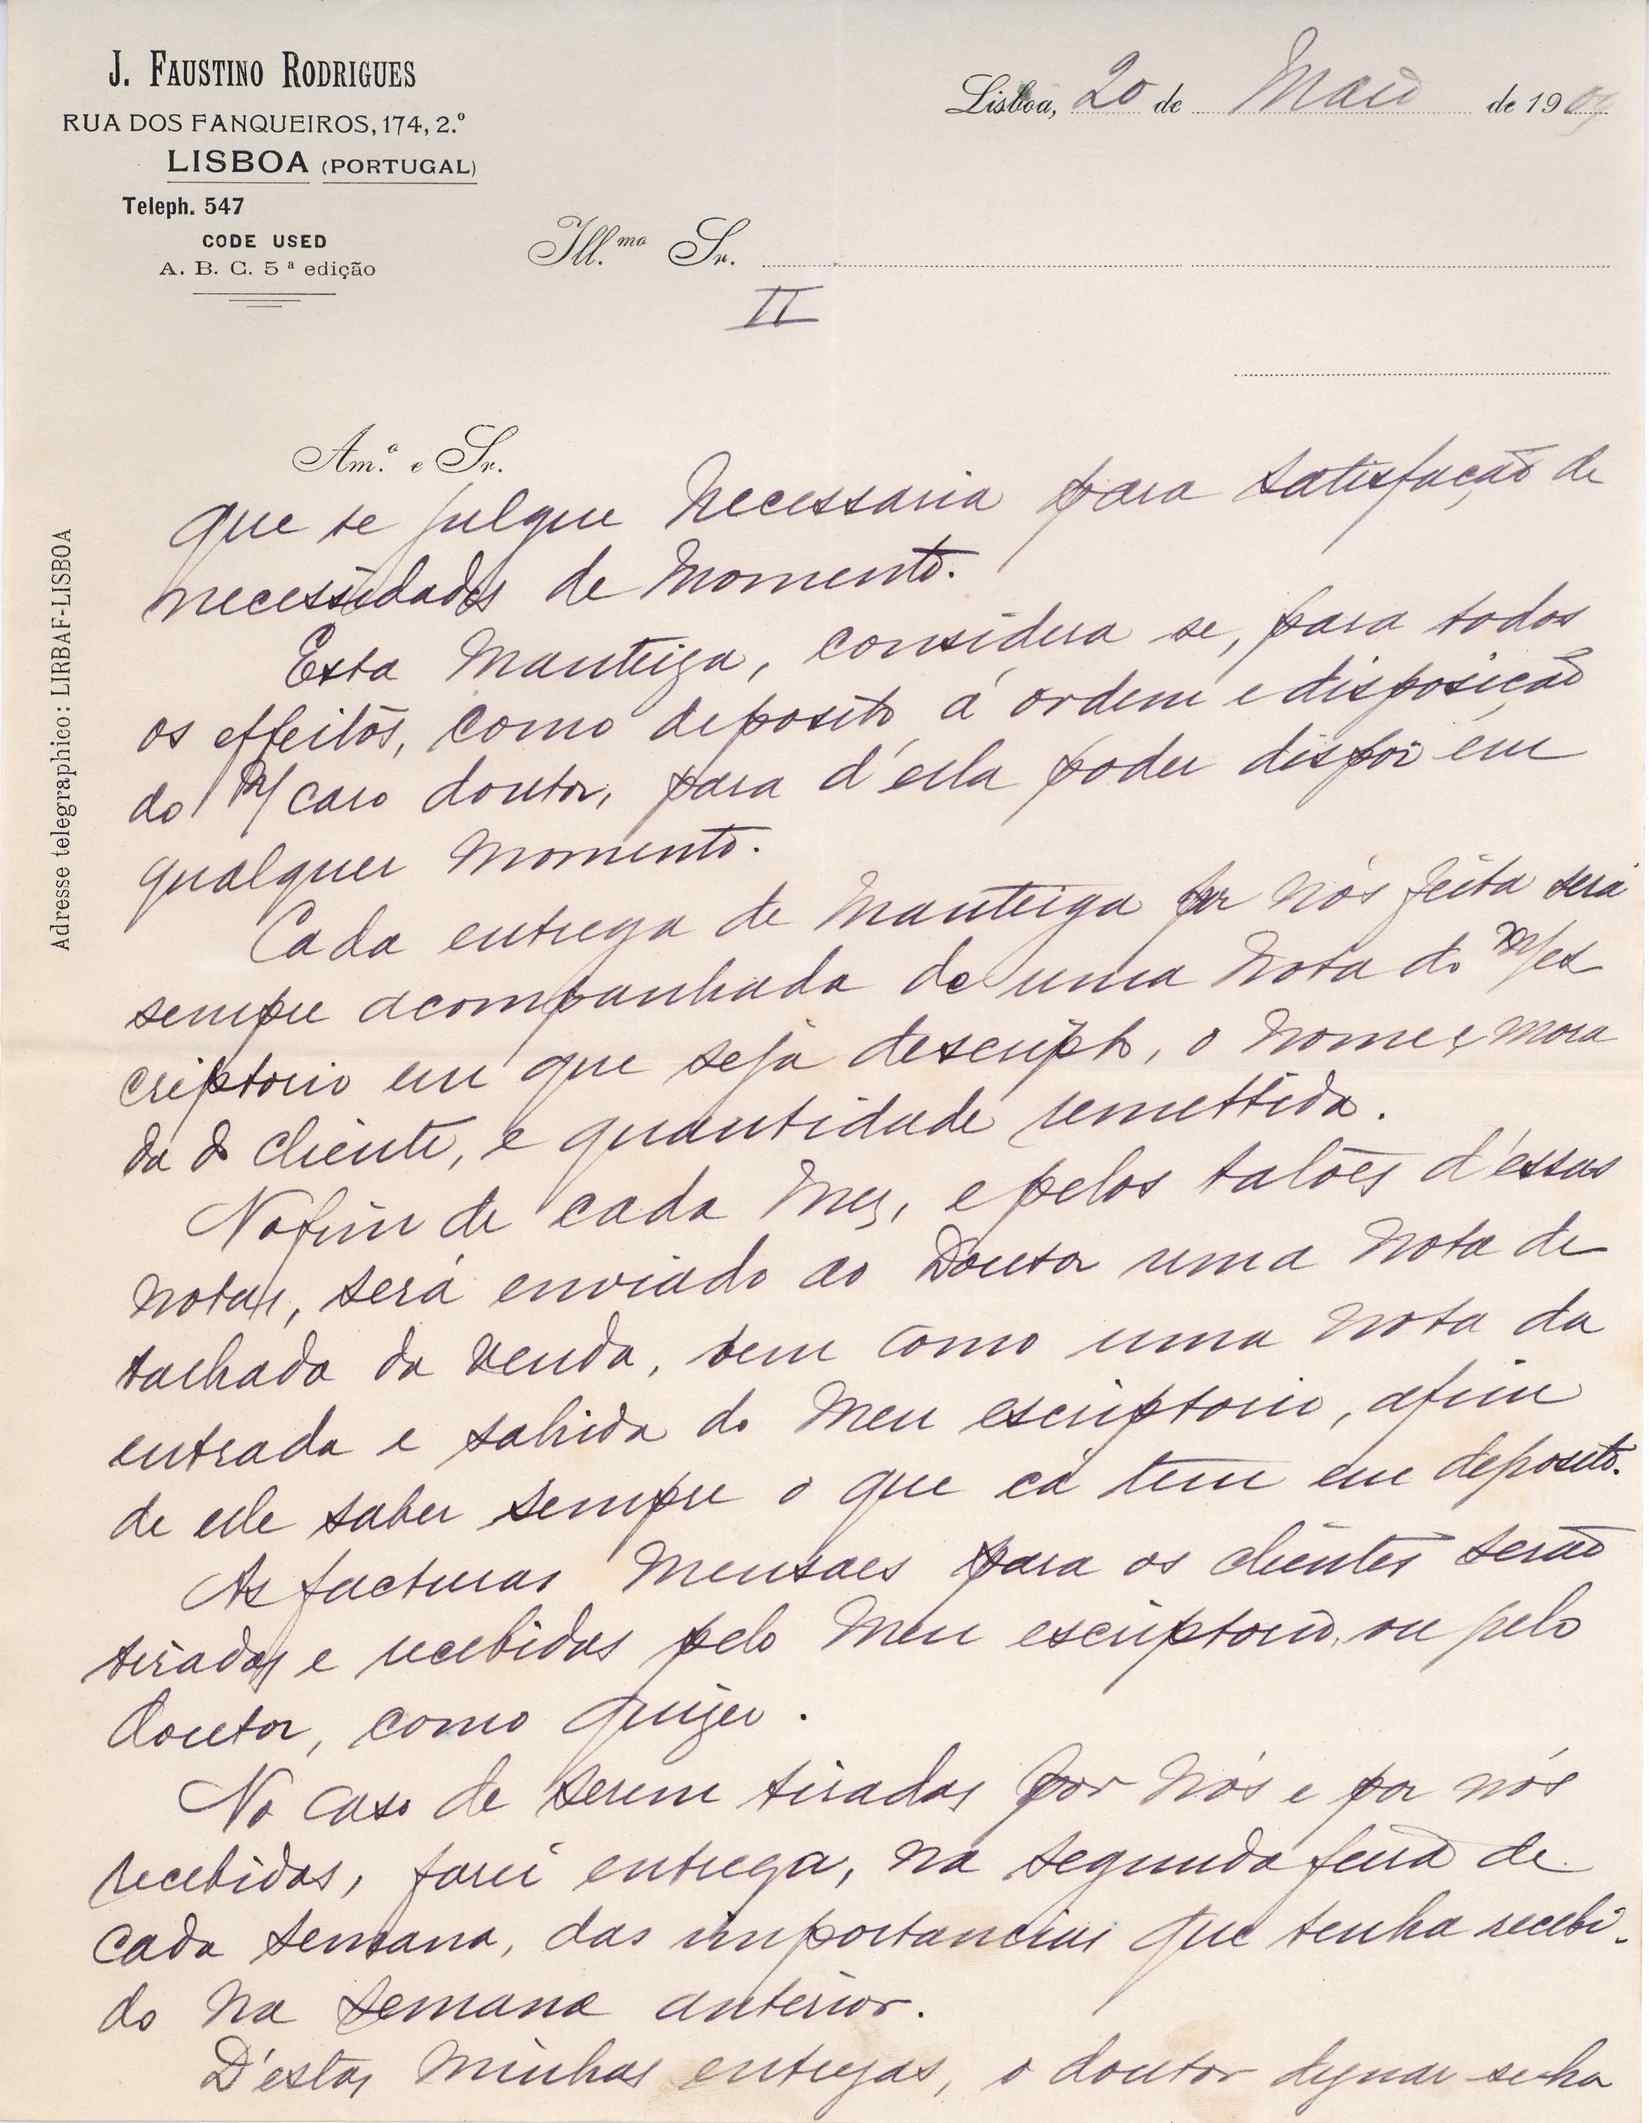 J. FAUSTINO RODRIGUES
RUA DOS FANQUEIROS, 174, 2.º
LISBOA (PORTUGAL)
Teleph. 547
CODE USED
A. B. C. 5ª edição
Adresse telegraphico: LIRBAF-LISBOA
Lisboa, 20 de Maio de 1909
Ill.mo Sr.
II
Am.º e Sr.
que se julgue necessaria para satisfação de
necessidades de momento.
Esta manteiga, considera se, para todos
os effeitos, como deposito á ordem e disposição
do M/ caro doutor, para d'ella poder dispôr em
qualquer momento.
Cada entrega de manteiga por nós feita será
sempre acompanhada de uma nota do m/ es
criptorio em que seja descripto, o nome e mora
da do cliente, e quantidade remettida.
No fim de cada mez, e pelos talões d'essas
notas, será enviado ao Doutor uma nota de
tachada da venda, bem como uma nota da
entrada e sahida do meu escriptorio, afim
de elle saber sempre o que cá tem em deposito.
As facturas mensaes para os clientes serão
tiradas e recebidas pelo meu escriptorio, ou pelo
doutor, como quizer.
No caso de serem tiradas por nós e por nós
recebidas, farei entrega, na segunda feira de
cada semana, das importancias que tenha recebi-
do na semana anterior.
D'estas minhas entregas, o doutor dignar se-ha